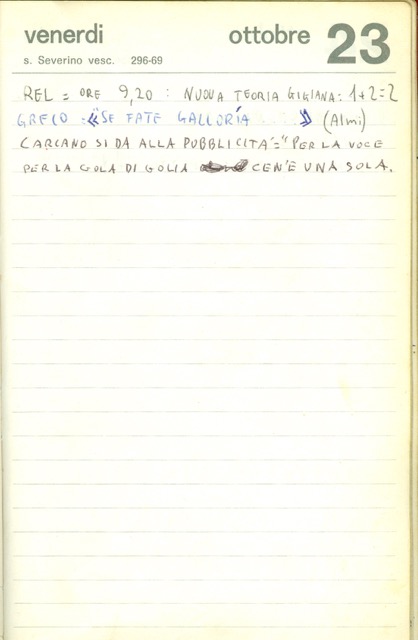 venerdi ottobre 23
s. Severino vesc. 296-69
REL = ORE 9,20 : NUOVA TEORIA GIGIANA: 1+2=2
GRECO = «SE FATE GALLORÍA » (Almi)
CARCANO SI DA ALLA PUBBLICITA'="PER LA VOCE
PER LA GOLA DI GOLIA CEN'E UNA SOLA.